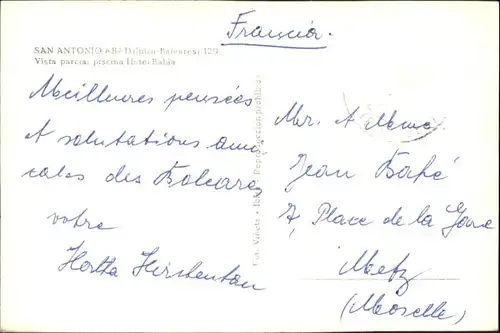 Francia.
SAN ANTONIO ABAD (Ibiza-Baleares) 129
Vista parcial piscina Hotel Bahía
Meilleures pensées
et salutations ami-
cales des Baleares
votre
Hertha Hirshentau
Mr. et Mme.
Jean
7, Place de la Gare
Metz
(Moselle)
Reproducción prohibida